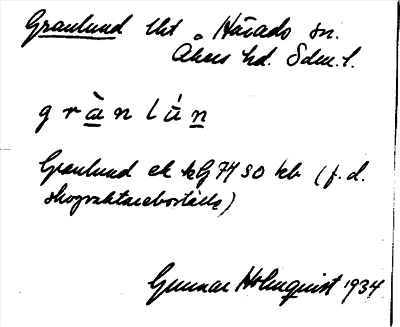 Granlund lht Härads sn.
Åkers hd. Sdm. l.
g r à n l ú n
Granlund ek kG 74 SO kb (f. d.
skogvaktareboställe)
Gunnar Holmquist 1934